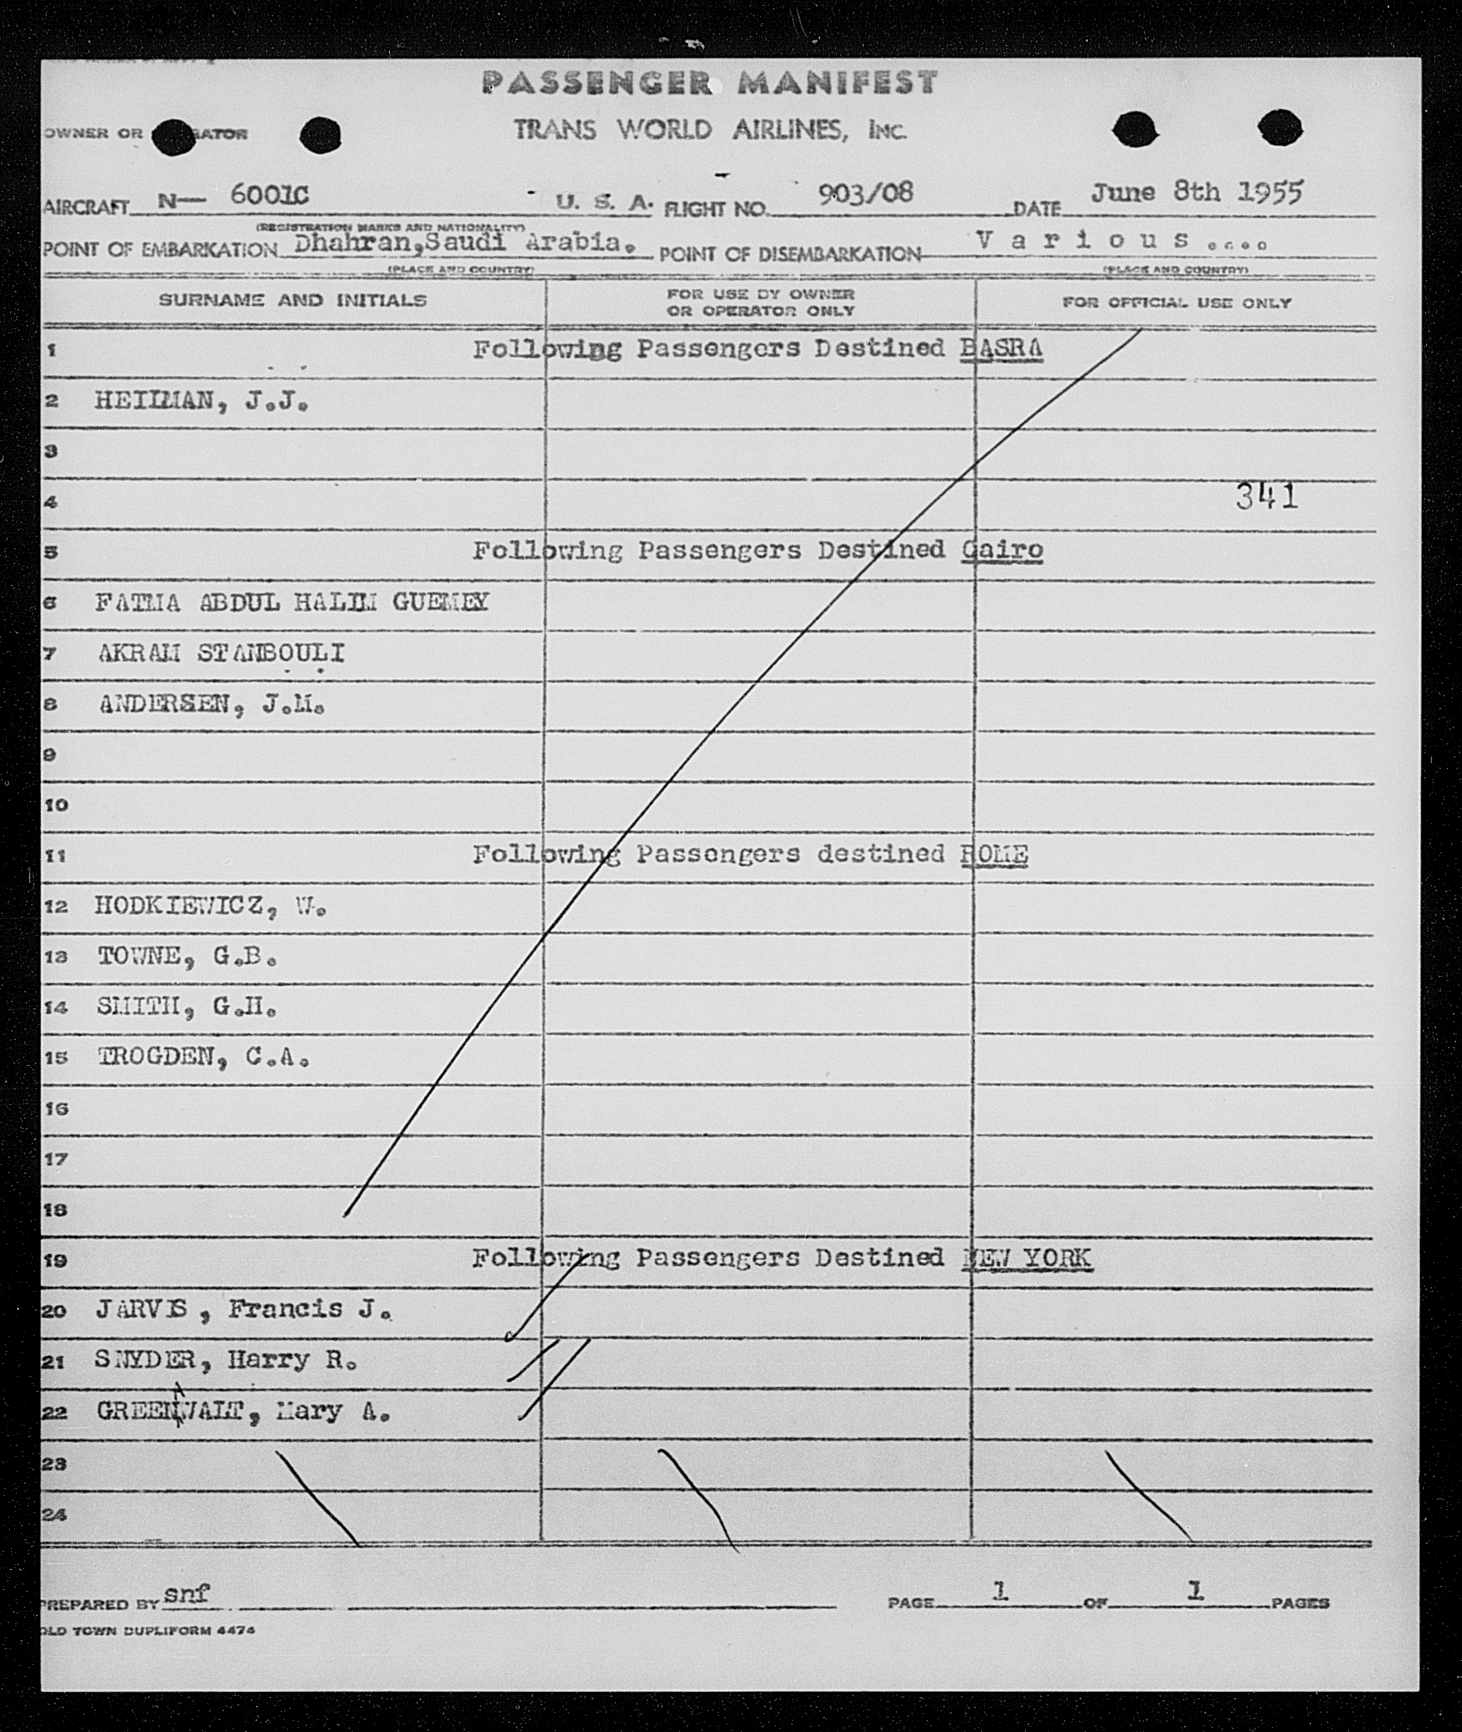 PASSENGER MANIFEST
OWNER OR TRANS WORLD AIRLINES, INC.
AIRCRAFT N— 6001C U. S. A. FLIGHT NO. 903/08 DATE June 8th 1955
(REGISTRATION MARKS AND NATIONALITY)
POINT OF EMBARKATION Dhahran,Saudi Arabia. POINT OF DISEMBARKATION Various....
(PLACE AND COUNTRY) (PLACE AND COUNTRY)
SURNAME AND INITIALS FOR USE BY OWNER OR OPERATOR ONLY FOR OFFICIAL USE ONLY
1 Following Passengers Destined BASRA
2 HEILMAN, J.J.
3
4 341
5 Following Passengers Destined Cairo
6 FATMA ABDUL HALIM GUEMEY
7 AKRAM STANBOULI
8 ANDERSEN, J.M.
9
10
11 Following Passengers destined ROME
12 HODKIEWICZ, W.
13 TOWNE, G.B.
14 SMITH, G.H.
15 TROGDEN, C.A.
16
17
18
19 Following Passengers Destined NEW YORK
20 JARVIS, Francis J.
21 SNYDER, Harry R.
22 GREENWALT, Mary A.
23
24
PREPARED BY snf PAGE 1 OF 1 PAGES
OLD TOWN DUPLIFORM 4474